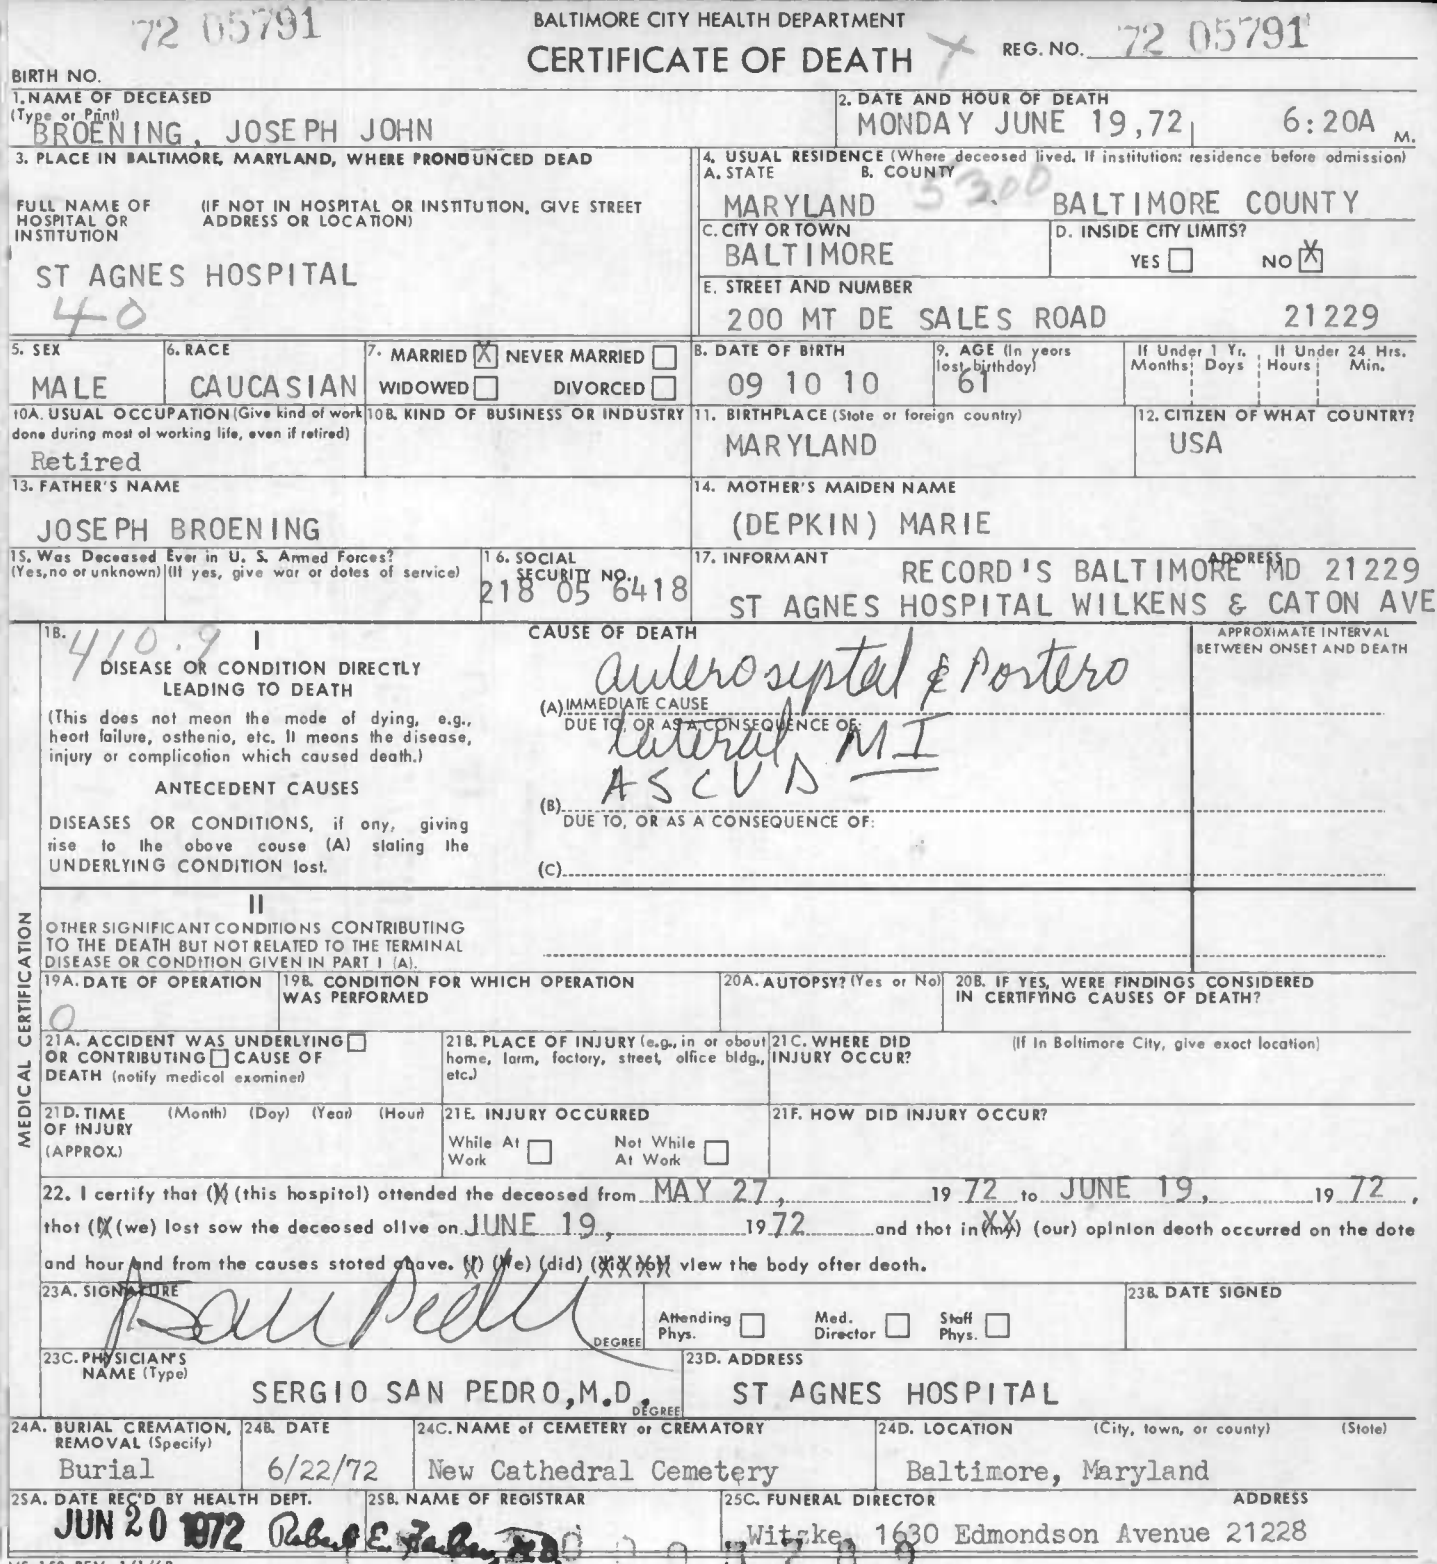 72 05791
BALTIMORE CITY HEALTH DEPARTMENT
CERTIFICATE OF DEATH
REG. NO. 72 05791
BIRTH NO.
1. NAME OF DECEASED
(Type or Print)
BROENING, JOSEPH JOHN
2. DATE AND HOUR OF DEATH
MONDAY JUNE 19,72 6:20A M.
3. PLACE IN BALTIMORE, MARYLAND, WHERE PRONOUNCED DEAD
FULL NAME OF HOSPITAL OR INSTITUTION
(IF NOT IN HOSPITAL OR INSTITUTION, GIVE STREET ADDRESS OR LOCATION)
ST AGNES HOSPITAL
40
4. USUAL RESIDENCE (Where deceased lived. If institution: residence before admission)
A. STATE B. COUNTY
5300
MARYLAND BALTIMORE COUNTY
C. CITY OR TOWN
BALTIMORE
D. INSIDE CITY LIMITS?
YES NO X
E. STREET AND NUMBER
200 MT DE SALES ROAD 21229
5. SEX
MALE
6. RACE
CAUCASIAN
7. MARRIED X NEVER MARRIED
WIDOWED DIVORCED
8. DATE OF BIRTH
09 10 10
9. AGE (In years last birthday)
61
If Under 1 Yr. If Under 24 Hrs.
Months Days Hours Min.
10A. USUAL OCCUPATION (Give kind of work done during most of working life, even if retired)
Retired
10B. KIND OF BUSINESS OR INDUSTRY
11. BIRTHPLACE (State or foreign country)
MARYLAND
12. CITIZEN OF WHAT COUNTRY?
USA
13. FATHER'S NAME
JOSEPH BROENING
14. MOTHER'S MAIDEN NAME
(DEPKIN) MARIE
15. Was Deceased Ever in U. S. Armed Forces?
(Yes, no or unknown) (If yes, give war or dates of service)
16. SOCIAL SECURITY NO.
218 05 6418
17. INFORMANT ADDRESS
RECORD'S BALTIMORE MD 21229
ST AGNES HOSPITAL WILKENS & CATON AVE
18. 410.9 I
DISEASE OR CONDITION DIRECTLY
LEADING TO DEATH
(This does not mean the mode of dying, e.g.,
heart failure, asthenia, etc. It means the disease,
injury or complication which caused death.)
ANTECEDENT CAUSES
DISEASES OR CONDITIONS, if any, giving
rise to the above cause (A) stating the
UNDERLYING CONDITION last.
CAUSE OF DEATH
anteroseptal & Postero
(A) IMMEDIATE CAUSE
DUE TO, OR AS A CONSEQUENCE OF:
lateral MI
ASCVD
(B)
DUE TO, OR AS A CONSEQUENCE OF:
(C)
APPROXIMATE INTERVAL
BETWEEN ONSET AND DEATH
MEDICAL CERTIFICATION
II
OTHER SIGNIFICANT CONDITIONS CONTRIBUTING
TO THE DEATH BUT NOT RELATED TO THE TERMINAL
DISEASE OR CONDITION GIVEN IN PART I (A).
19A. DATE OF OPERATION
0
19B. CONDITION FOR WHICH OPERATION WAS PERFORMED
20A. AUTOPSY? (Yes or No)
20B. IF YES, WERE FINDINGS CONSIDERED IN CERTIFYING CAUSES OF DEATH?
21A. ACCIDENT WAS UNDERLYING
OR CONTRIBUTING CAUSE OF
DEATH (notify medical examiner)
21B. PLACE OF INJURY (e.g., in or about home, farm, factory, street, office bldg., etc.)
21C. WHERE DID INJURY OCCUR?
(If in Baltimore City, give exact location)
21D. TIME OF INJURY (APPROX.)
(Month) (Day) (Year) (Hour)
21E. INJURY OCCURRED
While At Work Not While At Work
21F. HOW DID INJURY OCCUR?
22. I certify that (X) (this hospital) attended the deceased from MAY 27, 1972 to JUNE 19, 1972,
that (X) (we) last saw the deceased alive on JUNE 19, 1972 and that in (my) (our) opinion death occurred on the date
and hour and from the causes stated above. (I) (We) (did) (did not) view the body after death.
23A. SIGNATURE
San Pedro
DEGREE
Attending Phys. Med. Director Staff Phys.
23B. DATE SIGNED
23C. PHYSICIAN'S NAME (Type)
SERGIO SAN PEDRO, M.D.
DEGREE
23D. ADDRESS
ST AGNES HOSPITAL
24A. BURIAL CREMATION, REMOVAL (Specify)
Burial
24B. DATE
6/22/72
24C. NAME of CEMETERY or CREMATORY
New Cathedral Cemetery
24D. LOCATION (City, town, or county) (State)
Baltimore, Maryland
25A. DATE REC'D BY HEALTH DEPT.
JUN 20 1972
25B. NAME OF REGISTRAR
Robert E. Farber, M.D.
25C. FUNERAL DIRECTOR ADDRESS
Witzke, 1630 Edmondson Avenue 21228